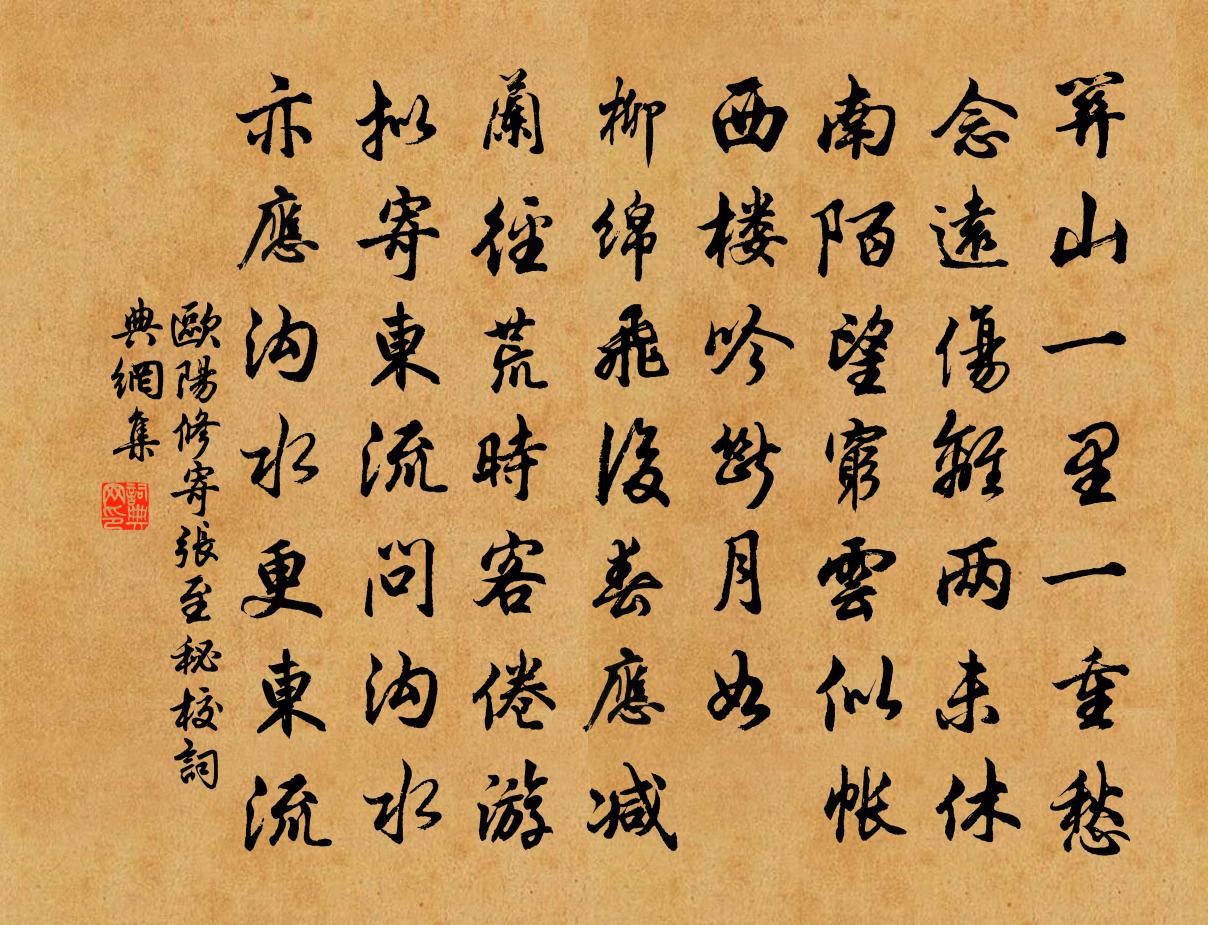 關山一里一重愁
念遠傷離两未休
南陌望窮雲似帐
西楼吟斷月如
柳绵飛後春應减
蘭徑荒時客倦游
拟寄東流問沟水
亦應沟水更東流
歐陽修寄張至秘校詞
典網集
詞典
网印